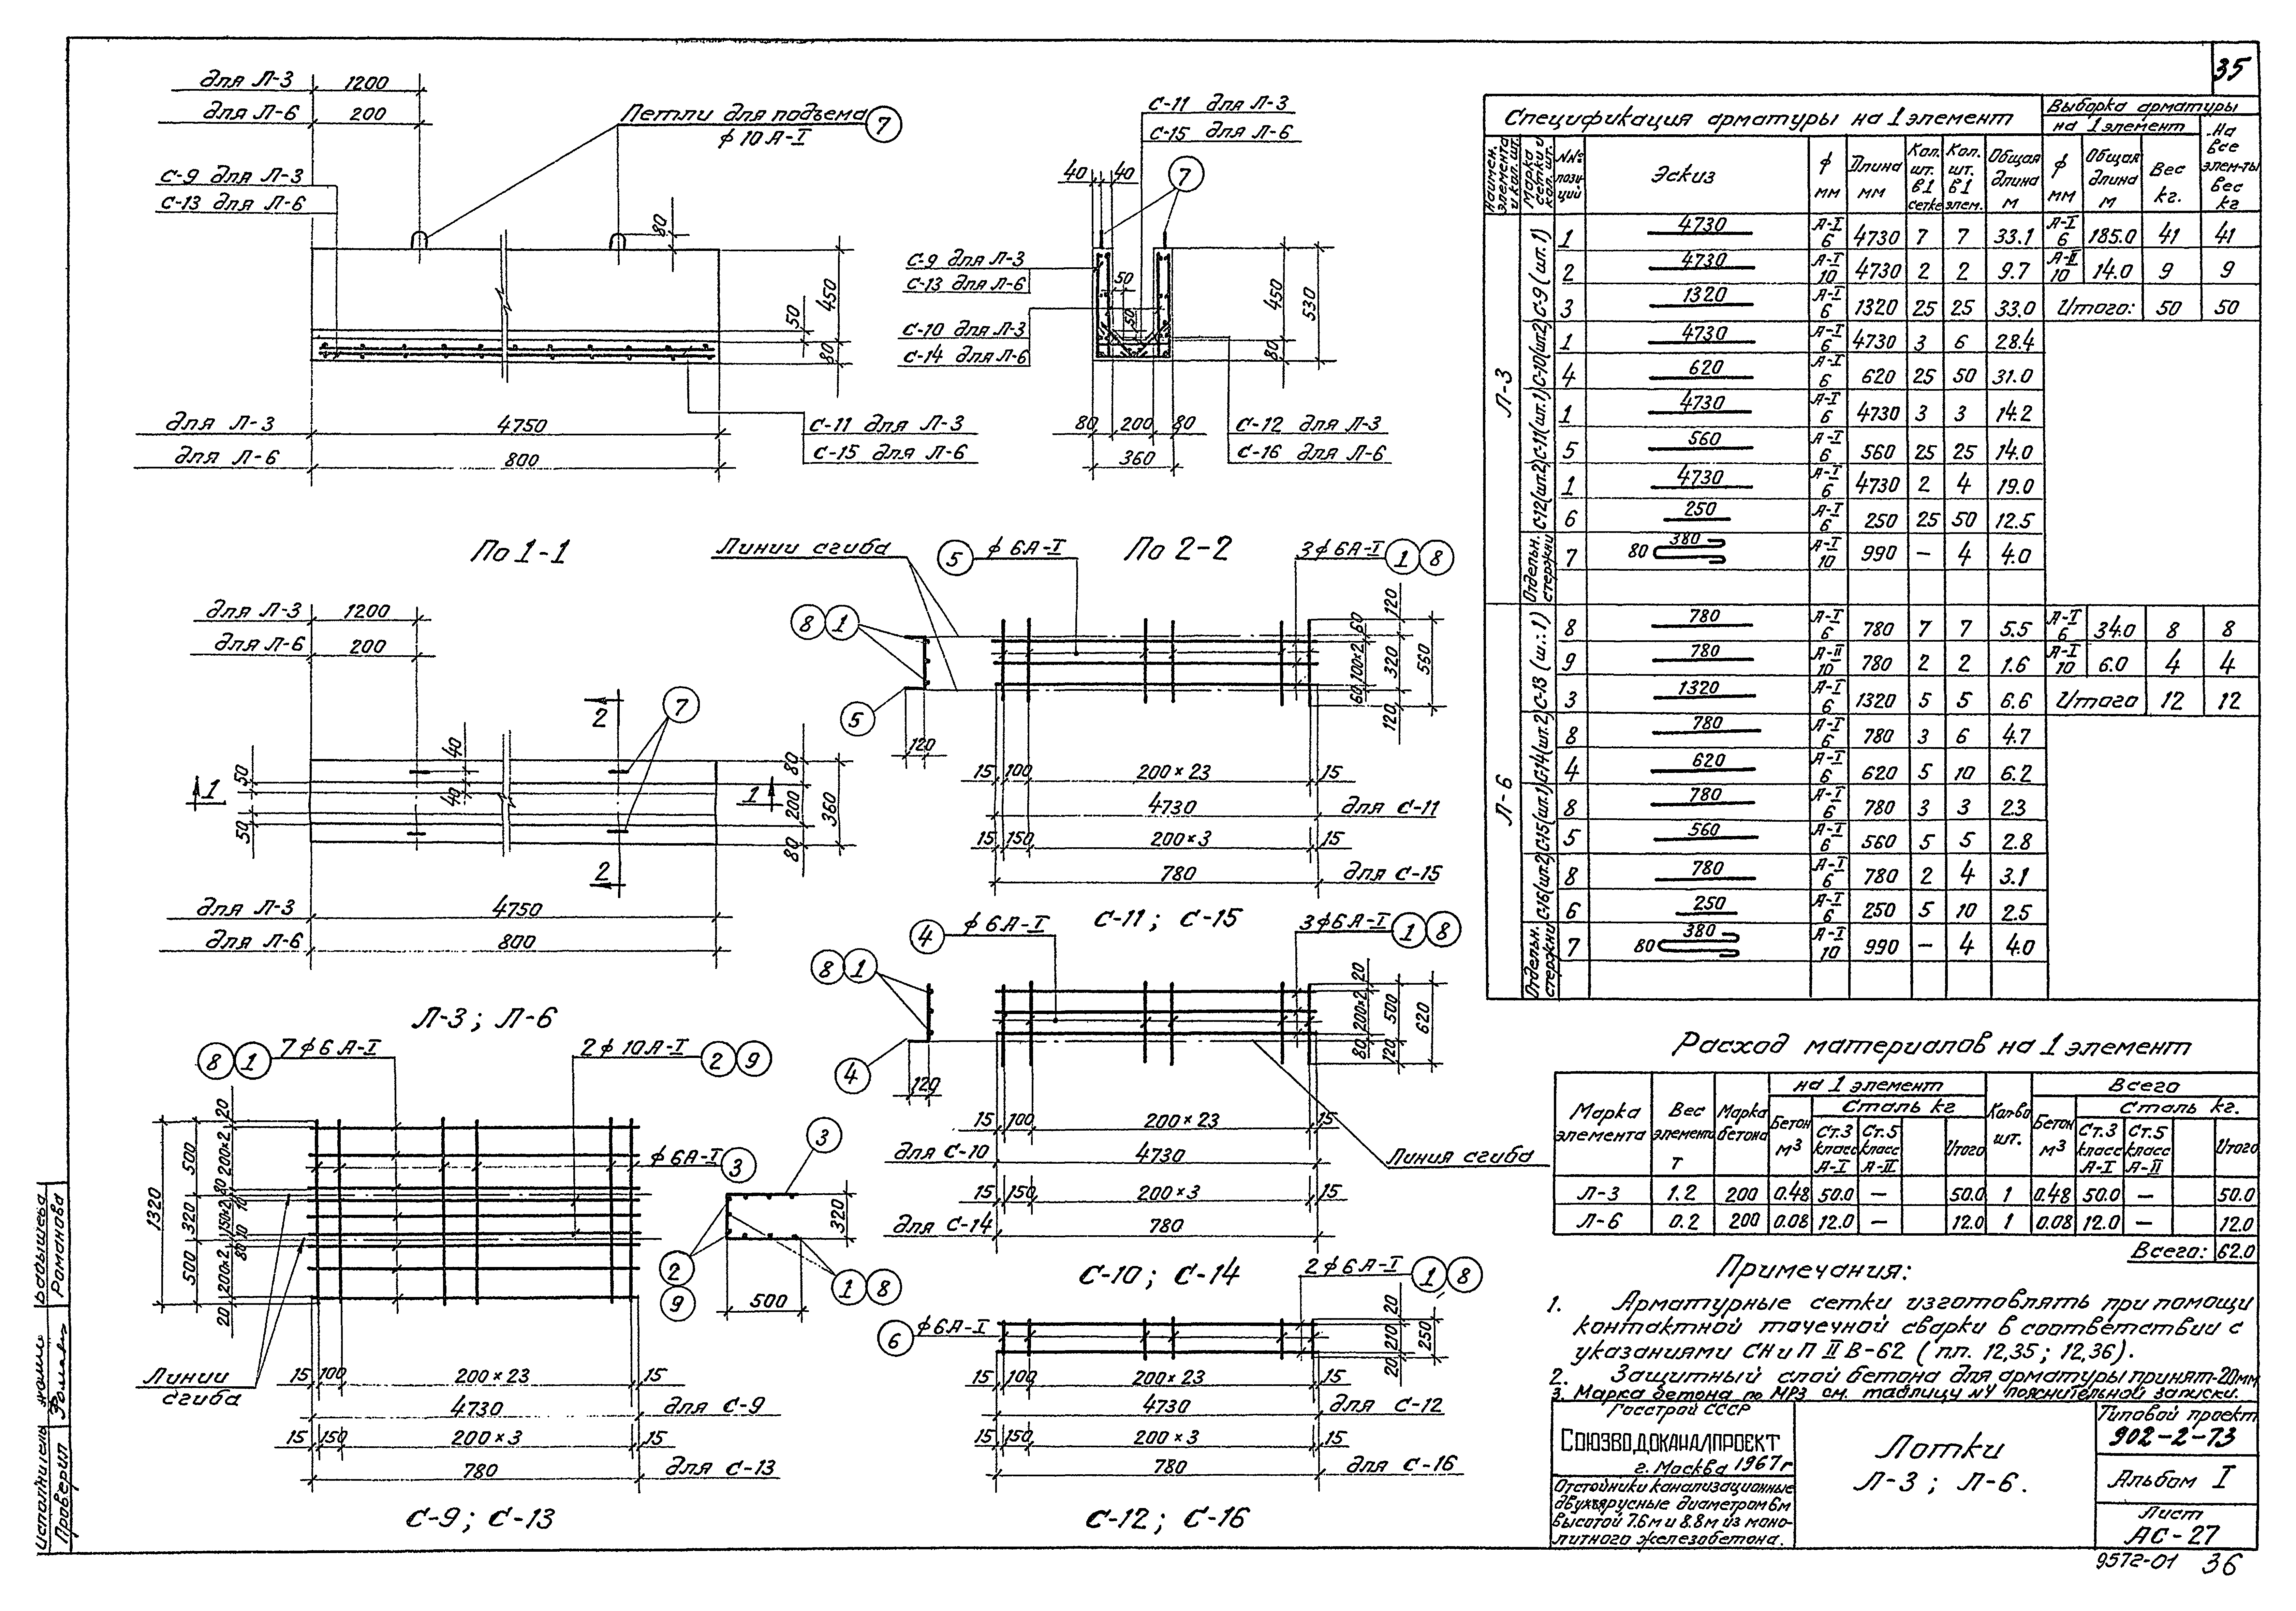 35
для Л-3 1200
для Л-6 200
Петли для подъема 7
ф 10 А-I
С-9 для Л-3
С-13 для Л-6
80
50
450
80
для Л-3 4750
для Л-6 800
С-11 для Л-3
С-15 для Л-6
По 1-1
С-11 для Л-3
С-15 для Л-6
40 40
7
С-9 для Л-3
С-13 для Л-6
50
50
С-10 для Л-3
С-14 для Л-6
450
530
80
80 200 80
360
С-12 для Л-3
С-16 для Л-6
По 2-2
для Л-3 1200
для Л-6 200
2
7
40
40
50
50
1
1
80
200
80
360
2
для Л-3 4750
для Л-6 800
Л-3; Л-6
Линии сгиба
5 ф 6А-I
3ф6А-I 1 8
8 1
5
120
120
60
100×2
60
320
120
560
15 100 200×23 15
4730 для С-11
15 150 200×3 15
780 для С-15
С-11; С-15
4 ф 6А-I
3ф6А-I 1 8
8 1
4
120
20
200×2
80
500
120
620
15 100 200×23 15
для С-10 4730
Линия сгиба
15 150 200×3 15
для С-14 780
С-10; С-14
8 1 7ф6А-I
2ф10А-I 2 9
ф6А-I 3
1320
500
320
500
20
200×2
80
10
150×2
10
80
200×2
20
Линии
сгиба
15 100 200×23 15
4730 для С-9
15 150 200×3 15
780 для С-13
С-9; С-13
3
320
2
9
1 8
500
2ф6А-I 1 8
6 ф6А-I
20
210
20
250
15 100 200×23 15
4730 для С-12
15 150 200×3 15
780 для С-16
С-12; С-16
Спецификация арматуры на 1 элемент
Выборка арматуры
на 1 элемент
На все элем-ты вес кг
Наимен. элемента и кол. шт.
Марка сетки и кол. шт.
№№ позиций
Эскиз
ф мм
Длина мм
Кол. шт. в 1 сетке
Кол. шт. в 1 элем.
Общая длина м
ф мм
Общая длина м
Вес кг.
Л-3
С-9 (шт. 1)
1 4730 А-I 6 4730 7 7 33.1 А-I 6 185.0 41 41
2 4730 А-I 10 4730 2 2 9.7 А-II 10 14.0 9 9
3 1320 А-I 6 1320 25 25 33.0 Итого: 50 50
С-10(шт.2)
1 4730 А-I 6 4730 3 6 28.4
4 620 А-I 6 620 25 50 31.0
С-11(шт.1)
1 4730 А-I 6 4730 3 3 14.2
5 560 А-I 6 560 25 25 14.0
С-12(шт.2)
1 4730 А-I 6 4730 2 4 19.0
6 250 А-I 6 250 25 50 12.5
Отдельн. стержни
7 80 380 А-I 10 990 — 4 4.0
Л-6
С-13
8 780 А-I 6 780 7 7 5.5 А-I 6 34.0 8 8
9 780 А-II 10 780 2 2 1.6 А-I 10 6.0 4 4
3 1320 А-I 6 1320 5 5 6.6 Итого 12 12
С-14(шт.2)
8 780 А-I 6 780 3 6 4.7
4 620 А-I 6 620 5 10 6.2
С-15(шт.1)
8 780 А-I 6 780 3 3 2.3
5 560 А-I 6 560 5 5 2.8
С-16(шт.2)
8 780 А-I 6 780 2 4 3.1
6 250 А-I 6 250 5 10 2.5
Отдельн. стержни
7 80 380 А-I 10 990 — 4 4.0
Расход материалов на 1 элемент
Марка элемента
Вес элемента т
Марка бетона
на 1 элемент
Бетон м3
Сталь кг
Ст.3 класс А-I
Ст.5 класс А-II
Итого
Кол-во шт.
Всего
Бетон м3
Сталь кг.
Ст.3 класс А-I
Ст.5 класс А-II
Итого
Л-3 1.2 200 0.48 50.0 — 50.0 1 0.48 50.0 — 50.0
Л-6 0.2 200 0.08 12.0 — 12.0 1 0.08 12.0 — 12.0
Всего: 62.0
Примечания:
1. Арматурные сетки изготовлять при помощи
контактной точечной сварки в соответствии с
указаниями СНиП II В-62 (пп. 12,35; 12,36).
2. Защитный слой бетона для арматуры принят-20мм
3. Марка бетона по МРЗ см. таблицу №4 пояснительной записки.
Госстрой СССР
СОЮЗВОДОКАНАЛПРОЕКТ
г. Москва 1967г
Отстойники канализационные
двухъярусные диаметром 6м
высотой 7.6м и 8.8м из моно-
литного железобетона.
Лотки
Л-3; Л-6.
Типовой проект
902-2-73
Альбом I
Лист
АС-27
9572-01 36
Исполнитель
Проверил
Романова